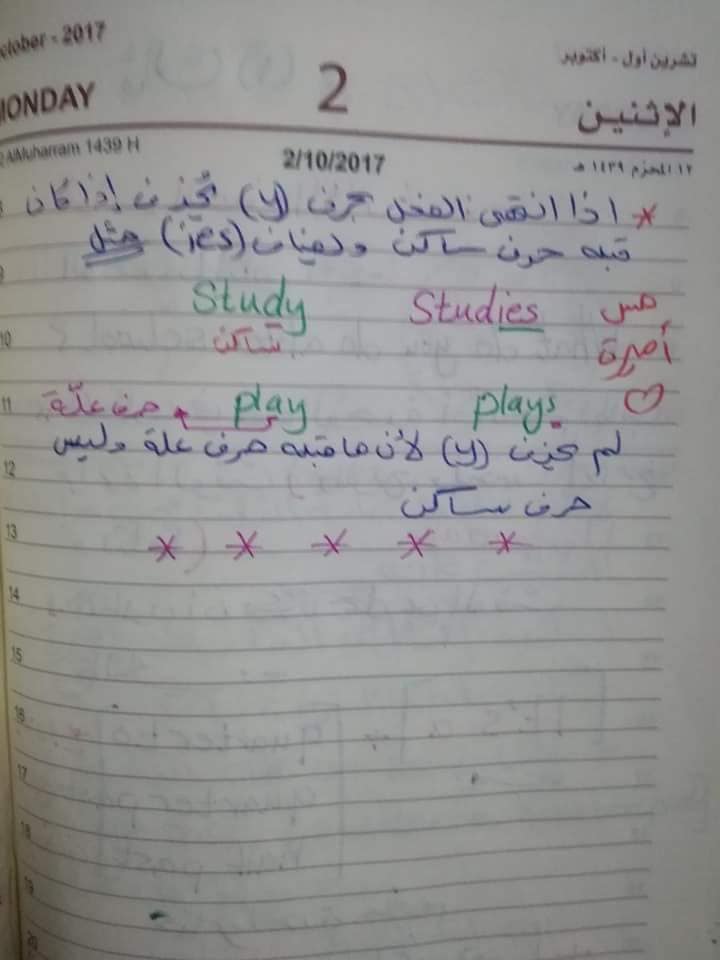 ctober - 2017
تشرين أول - أكتوبر
MONDAY
2
الإثنين
AlMuharram 1439 H
2/10/2017
١٢ المحرم ١٤٣٩ هـ
* اذا انتهى الفعل بحرف (y) تحذف إذا كان
قبله حرف ساكن ويضاف (ies) مثل
Study Studies مس
ساكن أميرة
حرف علّة play plays ♡
لم تحذف (y) لأن ما قبله حرف علة وليس
حرف ساكن
* * * * *
10
11
12
13
14
15
16
17
18
19
20